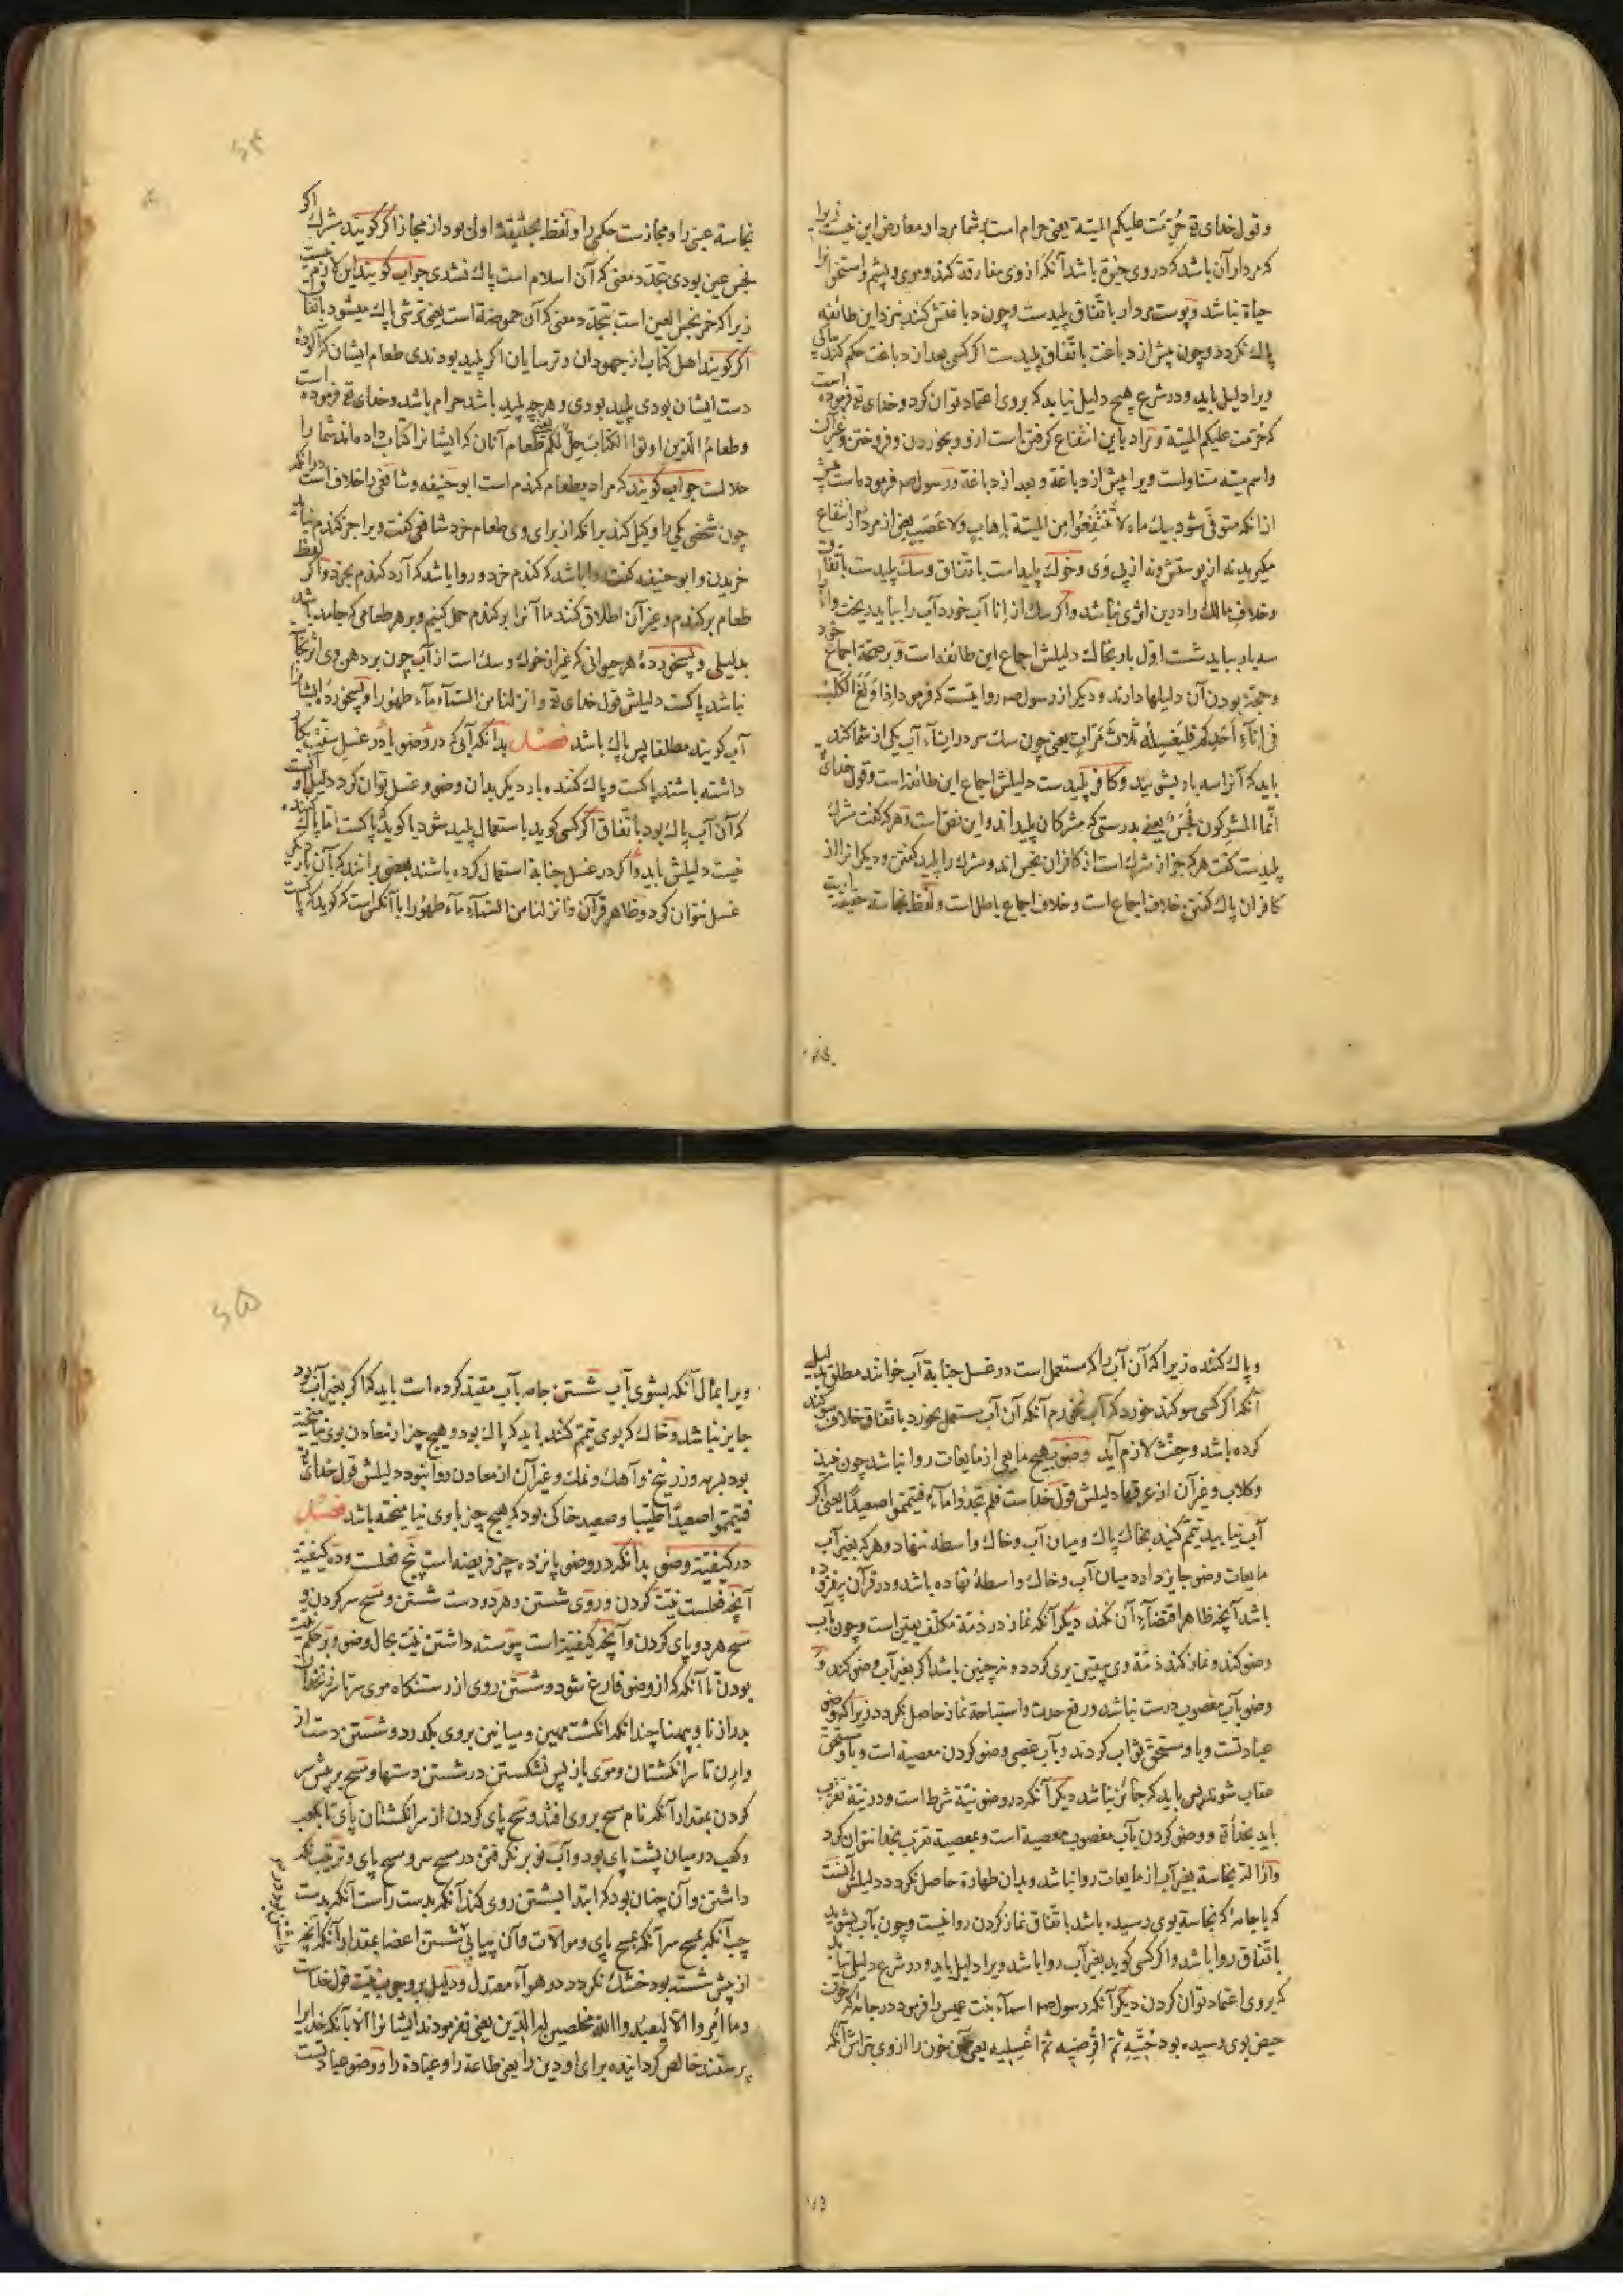 وقول خدای تع حُرّمَت علیکم المیتة یعنی حرام است بر شما مردار و معارض این نیست زیرا
که مردار آن باشد که در وی حیوة باشد آنکه از وی مفارقة کند و موی و پشم و استخوانرا
حیاة نباشد و پوست مردار باتّفاق پلیدست و چون دباغتش کنند بنزد این طائفه
پاک نکردد و چون پیش از دباغت باتّفاق پلیدست اکر کسی بعد از دباغت حکم کند بپاکی
ویرا دلیل باید و در شرع هیچ دلیل نیاید که بروی اعتماد توان کرد و خدای تع فرموده است
که حُرّمت علیکم المیتة و مراد باین انتفاع کرفتن است ازو و بخوردن و فروختن و غیر آن
واسم میته متناولست ویرا پیش از دباغة و بعد از دباغة و رسول صه فرموده است پیش
ازانکه متوفّی شود بیک ماه لا تَنْتَفِعُوا مِن المیتة بإهابٍ ولا عَصَبٍ یعنی از مردار انتفاع
مکیرید نه از پوستش و نه از پی وی و خوک پلیداست باتفاق و سک پلیدست باتفاق
و خلاف مالک را درین اثری نباشد و اکر سک از إنا آب خورد آب را بباید ریخت و إنا را
سه بار بباید شست اوّل بار بخاک دلیلش اجماع این طائفه است و بر صحّة اجماع خود
و حجّة بودن آن دلیلها دارند و دیکر از رسول صه روایتست که فرمود إذا وَلَغَ الکَلْبُ
فی إنَآءِ أحَدِکم فلیَغسِلهُ ثلاثَ مَرّاتٍ یعنی چون سک سر در إناء آب یکی از شما کند
باید که آنرا سه بار بشویند و کافر پلیدست دلیلش اجماع این طائفه است و قول خدای تع
انّما المشرکون نَجَسٌ یعنی بدرستی که مشرکان پلیداند و این نصّ است و هر که کفت مشرک
پلیدست کفت هر که جز از مشرک است از کافران نجس اند و مشرک را پلید کفتن و دیکرانرا از
کافران پاک کفتن خلاف اجماع است و خلاف اجماع باطل است و لفظ نجاسة حقیقة
نجاسة عین را و مجازست حکمی را و لفظ بحقیقة اولی بود از مجاز اکر کویند مشرک اکر
نجس عین بودی بتجدّد معنی که آن اسلام است پاک نشدی جواب کویند این لازم نیست
زیرا که خمر نجس العین است بتجدّد معنی که آن حموضة است یعنی ترشی پاک میشود باتفاق
اکر کویند اهل کتاب از جهودان و ترسایان اکر پلید بودندی طعام ایشان که آلوده
دست ایشان بودی پلید بودی و هر چه پلید باشد حرام باشد و خدای تع فرموده است
وطعامُ الّذین اوتوا الکتابَ حِلٌّ لکم یعنی طعام آنان که ایشانرا کتاب داده اند شما را
حلالست جواب کویند که مراد بطعام کندم است ابوحنیفه و شافعی را خلاف است درانکه
چون شخصی یکی را وکیل کند برانکه از برای وی طعام خرد شافعی کفت ویرا جز کندم نباید
خریدن و ابوحنیفه کفت روا باشد که کندم خرد و روا باشد که آرد کندم بخرد و اکر لفظ
طعام بر کندم و غیر آن اطلاق کنند ما آنرا بر کندم حمل کنیم و بر هر طعامی که جامد باشد
بدلیلی و پسخوردهٔ هر حیوانی که غیر از خوک و سک است از آب چون بر دهن وی اثر نجاسة
نباشد پاکست دلیلش قول خدای تع و انزلنا من السّمآء مآء طهورا و پسخوردهٔ ایشانرا
آب کویند مطلقا پس پاک باشد فصل بدانکه آبی که در وضو یا در غسل سنّت بکار
داشته باشند پاکست و پاک کننده بار دیکر بدان وضو و غسل توان کرد دلیل آنست
که آن آب پاک بود باتّفاق اکر کسی کوید باستعمال پلید شود یا کوید پاکست امّا پاک کننده
نیست دلیلش باید و اکر در غسل جنابة استعمال کرده باشند بعضی برانند که بآن بار دیکر
غسل نتوان کرد و ظاهر قرآن وانزلنا من السّمآء مآء طهُورا با آنکس است که کوید که پاکست
وپاک کننده زیرا که آن آب را که مستعمل است در غسل جنابة آب خوانند مطلق بدلیل
آنکه اکر کسی سوکند خورد که آب نخورم آنکه آن آب مستعمل بخورد باتّفاق خلاف سوکند
کرده باشد و حِنْث لازم آید وضو بهیچ مایعی از مایعات روا نباشد چون نبیذ
وکلاب و غیر آن از عرقها دلیلش قول خداست فلم تجدُوا مآء فتیمّموا صعیدًا یعنی اکر
آب نیابید تیمّم کنید بخاک پاک و میان آب و خاک واسطه ننهاد و هر که بغیر آب
مایعات وضو جایز دارد میان آب و خاک واسطهٔ نهاده باشد و در قرآن بیفزوده
باشد آنچه ظاهر اقتضآءِ آن نکند دیکر آنکه نماز در ذمّة مکلّف بیقین است و چون بآب
وضو کند و نماز کند ذمّة وی بیقین بری کردد و نه چنین باشد اکر بغیر آب وضو کند و
وضو بآب مغصوب درست نباشد و رفع حدث و استباحة نماز حاصل نکردد زیرا که وضو
عبادتست و باو مستحقّ ثواب کردند و بآب غصبی وضو کردن معصیة است و باو مستحقّ
عقاب شوند پس باید که جائز نباشد دیکر آنکه در وضو نیّة شرط است و در نیّة تقرّب
باید بخدا تع و وضو کردن بآب مغصوب معصیة است و بمعصیة تقرّب بخدا نتوان کرد
وازالة نجاسة بغیر آب از مایعات روا نباشد و بدان طهارة حاصل نکردد دلیلش آنست
که با جامهٔ که نجاسة بوی رسیده باشد باتّفاق نماز کردن روا نیست و چون بآب بشوید
باتّفاق روا باشد و اکر کسی کوید بغیر آب روا باشد ویرا دلیل باید و در شرع دلیل نیاید
که بروی اعتماد توان کردن دیکر آنکه رسول صه اسمآء بنت عمیس را فرمود در جامهٔ که خون
حیض بوی رسیده بود حُتّیهِ ثمّ اقرُصیه ثمّ اغسلیه یعنی خون را ازوی بتراش آنکه
ویرا بمال آنکه بشوی بآب شستن جامه بآب مقیّد کرده است باید که اکر بغیر آب بود
جایز نباشد و خاک که بوی تیمّم کنند باید که پاک بود و هیچ چیز از معادن بوی نیامیخته
بود و زرنیخ و آهک و نمک و غیر آن از معادن روا نبود دلیلش قول خدای تع
فتیمّموا صعیدًا طیّبا و صعید خاکی بود که هیچ چیز با وی نیامیخته باشد فصل
در کیفیّة وضو بدانکه در وضو پانزده چیز فریضه است پنج فعلست و ده کیفیّة
آنچه فعلست نیّت کردن و روی شستن و هر دو دست شستن و مسح سر کردن و
مسح هر دو پای کردن و آنچه کیفیّة است پیوسته داشتن نیّت بحال وضو و بر حکم نیّت
بودن تا آنکه که از وضو فارغ شود و شستن روی از رستنکاه موی سر تا سر زنخدان
بدرازنا و بپهنا چندانکه انکشت مهین و میانین بروی بکذرد و شستن دست از
وارن تا سر انکشتان و موی باز پس نشکستن در شستن دستها و مسح بر پیش سر
کردن بمقدار آنکه نام مسح بروی افتد و مسح پای کردن از سر انکشتان پای تا بکعب
وکعب در میان پشت پای بود و آب نو بر نکرفتن در مسح سر و مسح پای و ترتیب نکه
داشتن و آن چنان بود که ابتدا بشستن روی کند آنکه بدست راست آنکه بدست
چپ آنکه بمسح سر آنکه بمسح پای و موالات و آن پیاپی شستن اعضا بمقدار آنکه آنچه
از پیش شسته بود خشک نکردد در هوآء معتدل و دلیل بر وجوب نیّت قول خداست
وما اُمِروا الّا لیعبُدوا الله مخلصین له الدّین یعنی نفرمودند ایشانرا الّا بآنکه خدایرا
پرستند خالص کرداننده برای او دین را یعنی طاعة را و عبادة را و وضو عبادتست